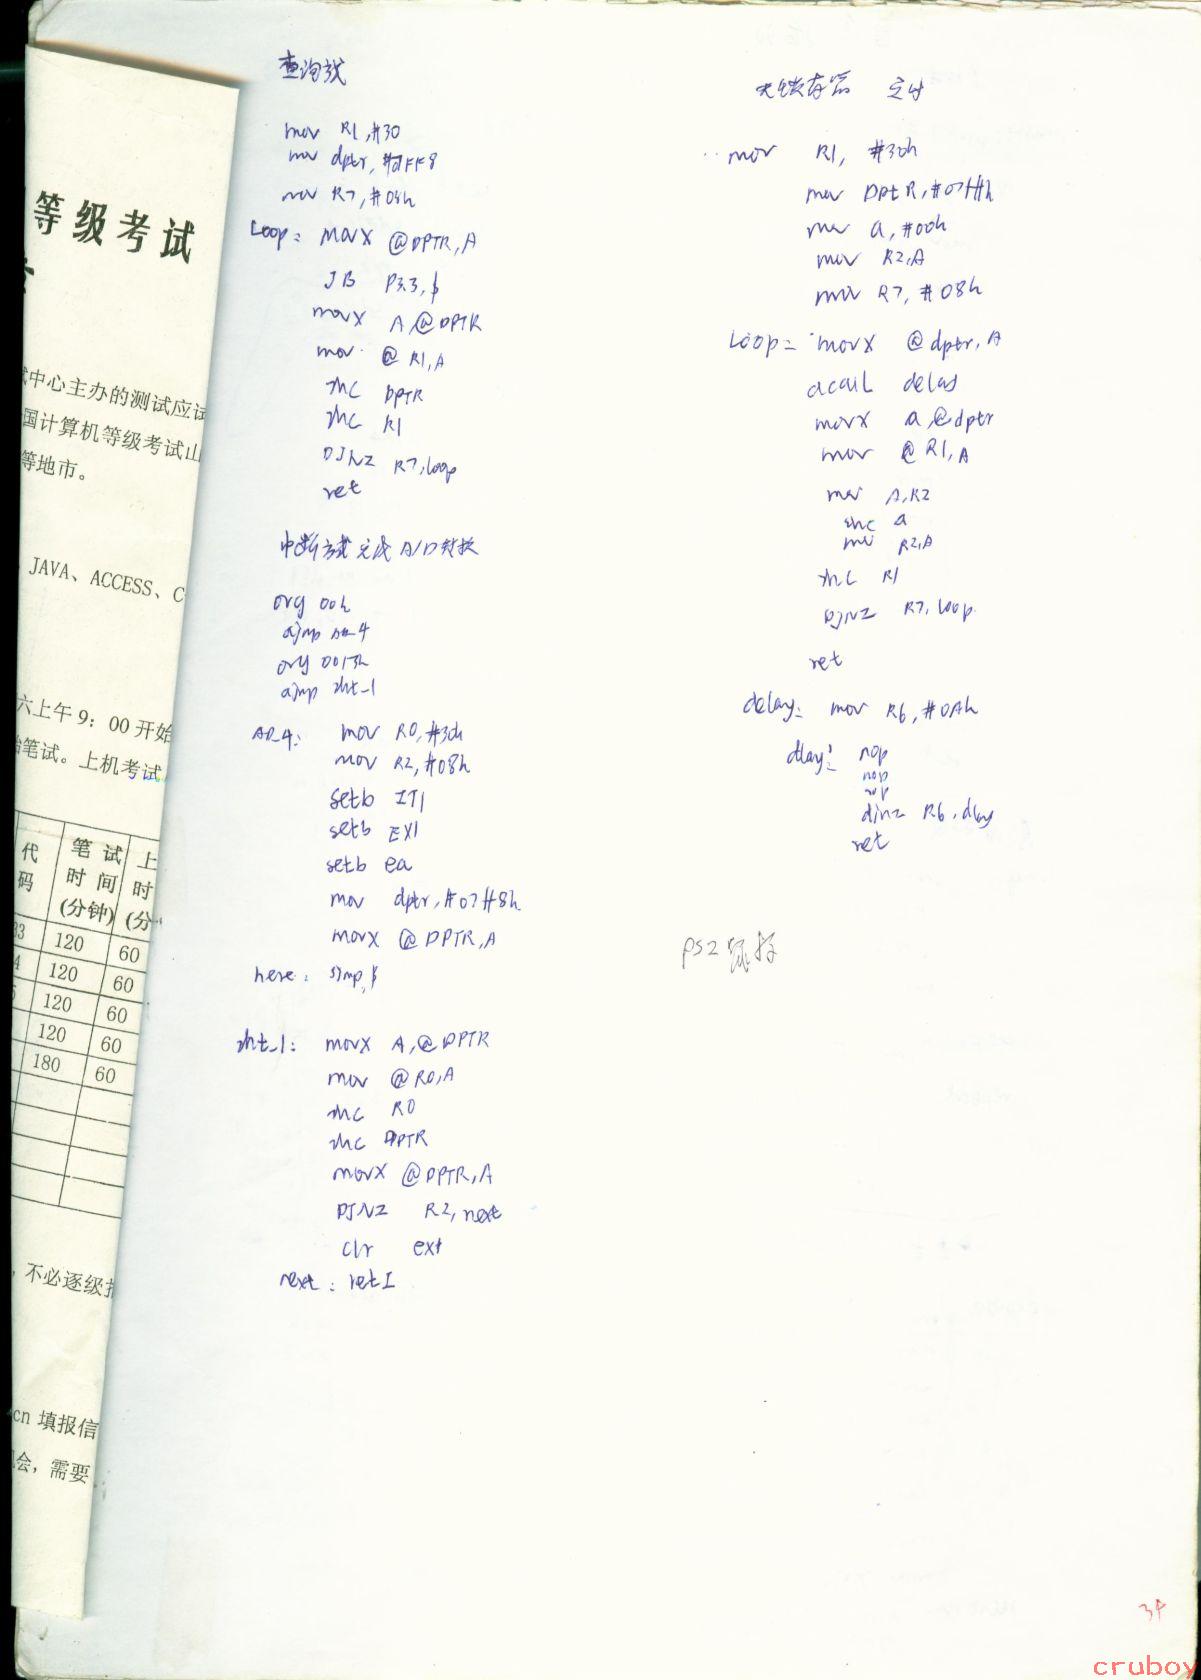 等级考试
中心主办的测试应试
国计算机等级考试山
等地市。
JAVA、ACCESS、C
六上午9：00开始
笔试。上机考试
代码 笔试时间(分钟) 上
时
(分
33 120 60
4 120 60
5 120 60
120 60
180 60
，不必逐级报
.cn 填报信
会，需要
查询式
mov R1,#30
mov dptr,#7FF8
mov R7,#08h
Loop: movx @DPTR,A
JB P3.3,$
movx A,@DPTR
mov @R1,A
inc DPTR
inc R1
DJNZ R7,loop
ret
中断方式完成A/D转换
org 00h
ajmp AD_4
org 0013h
ajmp int_1
AD_4: mov R0,#30h
mov R2,#08h
setb IT1
setb EX1
setb ea
mov dptr,#07ff8h
movx @DPTR,A
here: sjmp,$
int_1: movx A,@DPTR
mov @R0,A
inc R0
inc DPTR
movx @DPTR,A
DJNZ R2,next
clr ex1
next: retI
无锁存器 延时
mov R1, #30h
mov DptR,#07ffh
mov a,#00h
mov R2,A
mov R7,#08h
Loop: movx @dptr,A
acall delay
movx a,@dptr
mov @R1,A
mov A,R2
inc a
mov R2,A
inc R1
DJNZ R7,loop
ret
delay: mov R6,#0Ah
dlay: nop
nop
nop
djnz R6,dlay
ret
PS2
34
cruboy